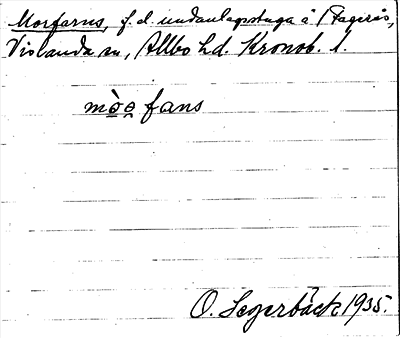 Morfarns, f.d. undantagsstuga å Fagerås,
Vislanda sn, Allbo hd. Kronob. l.
mò̱o̱ fans
O. Segerbäck 1935.